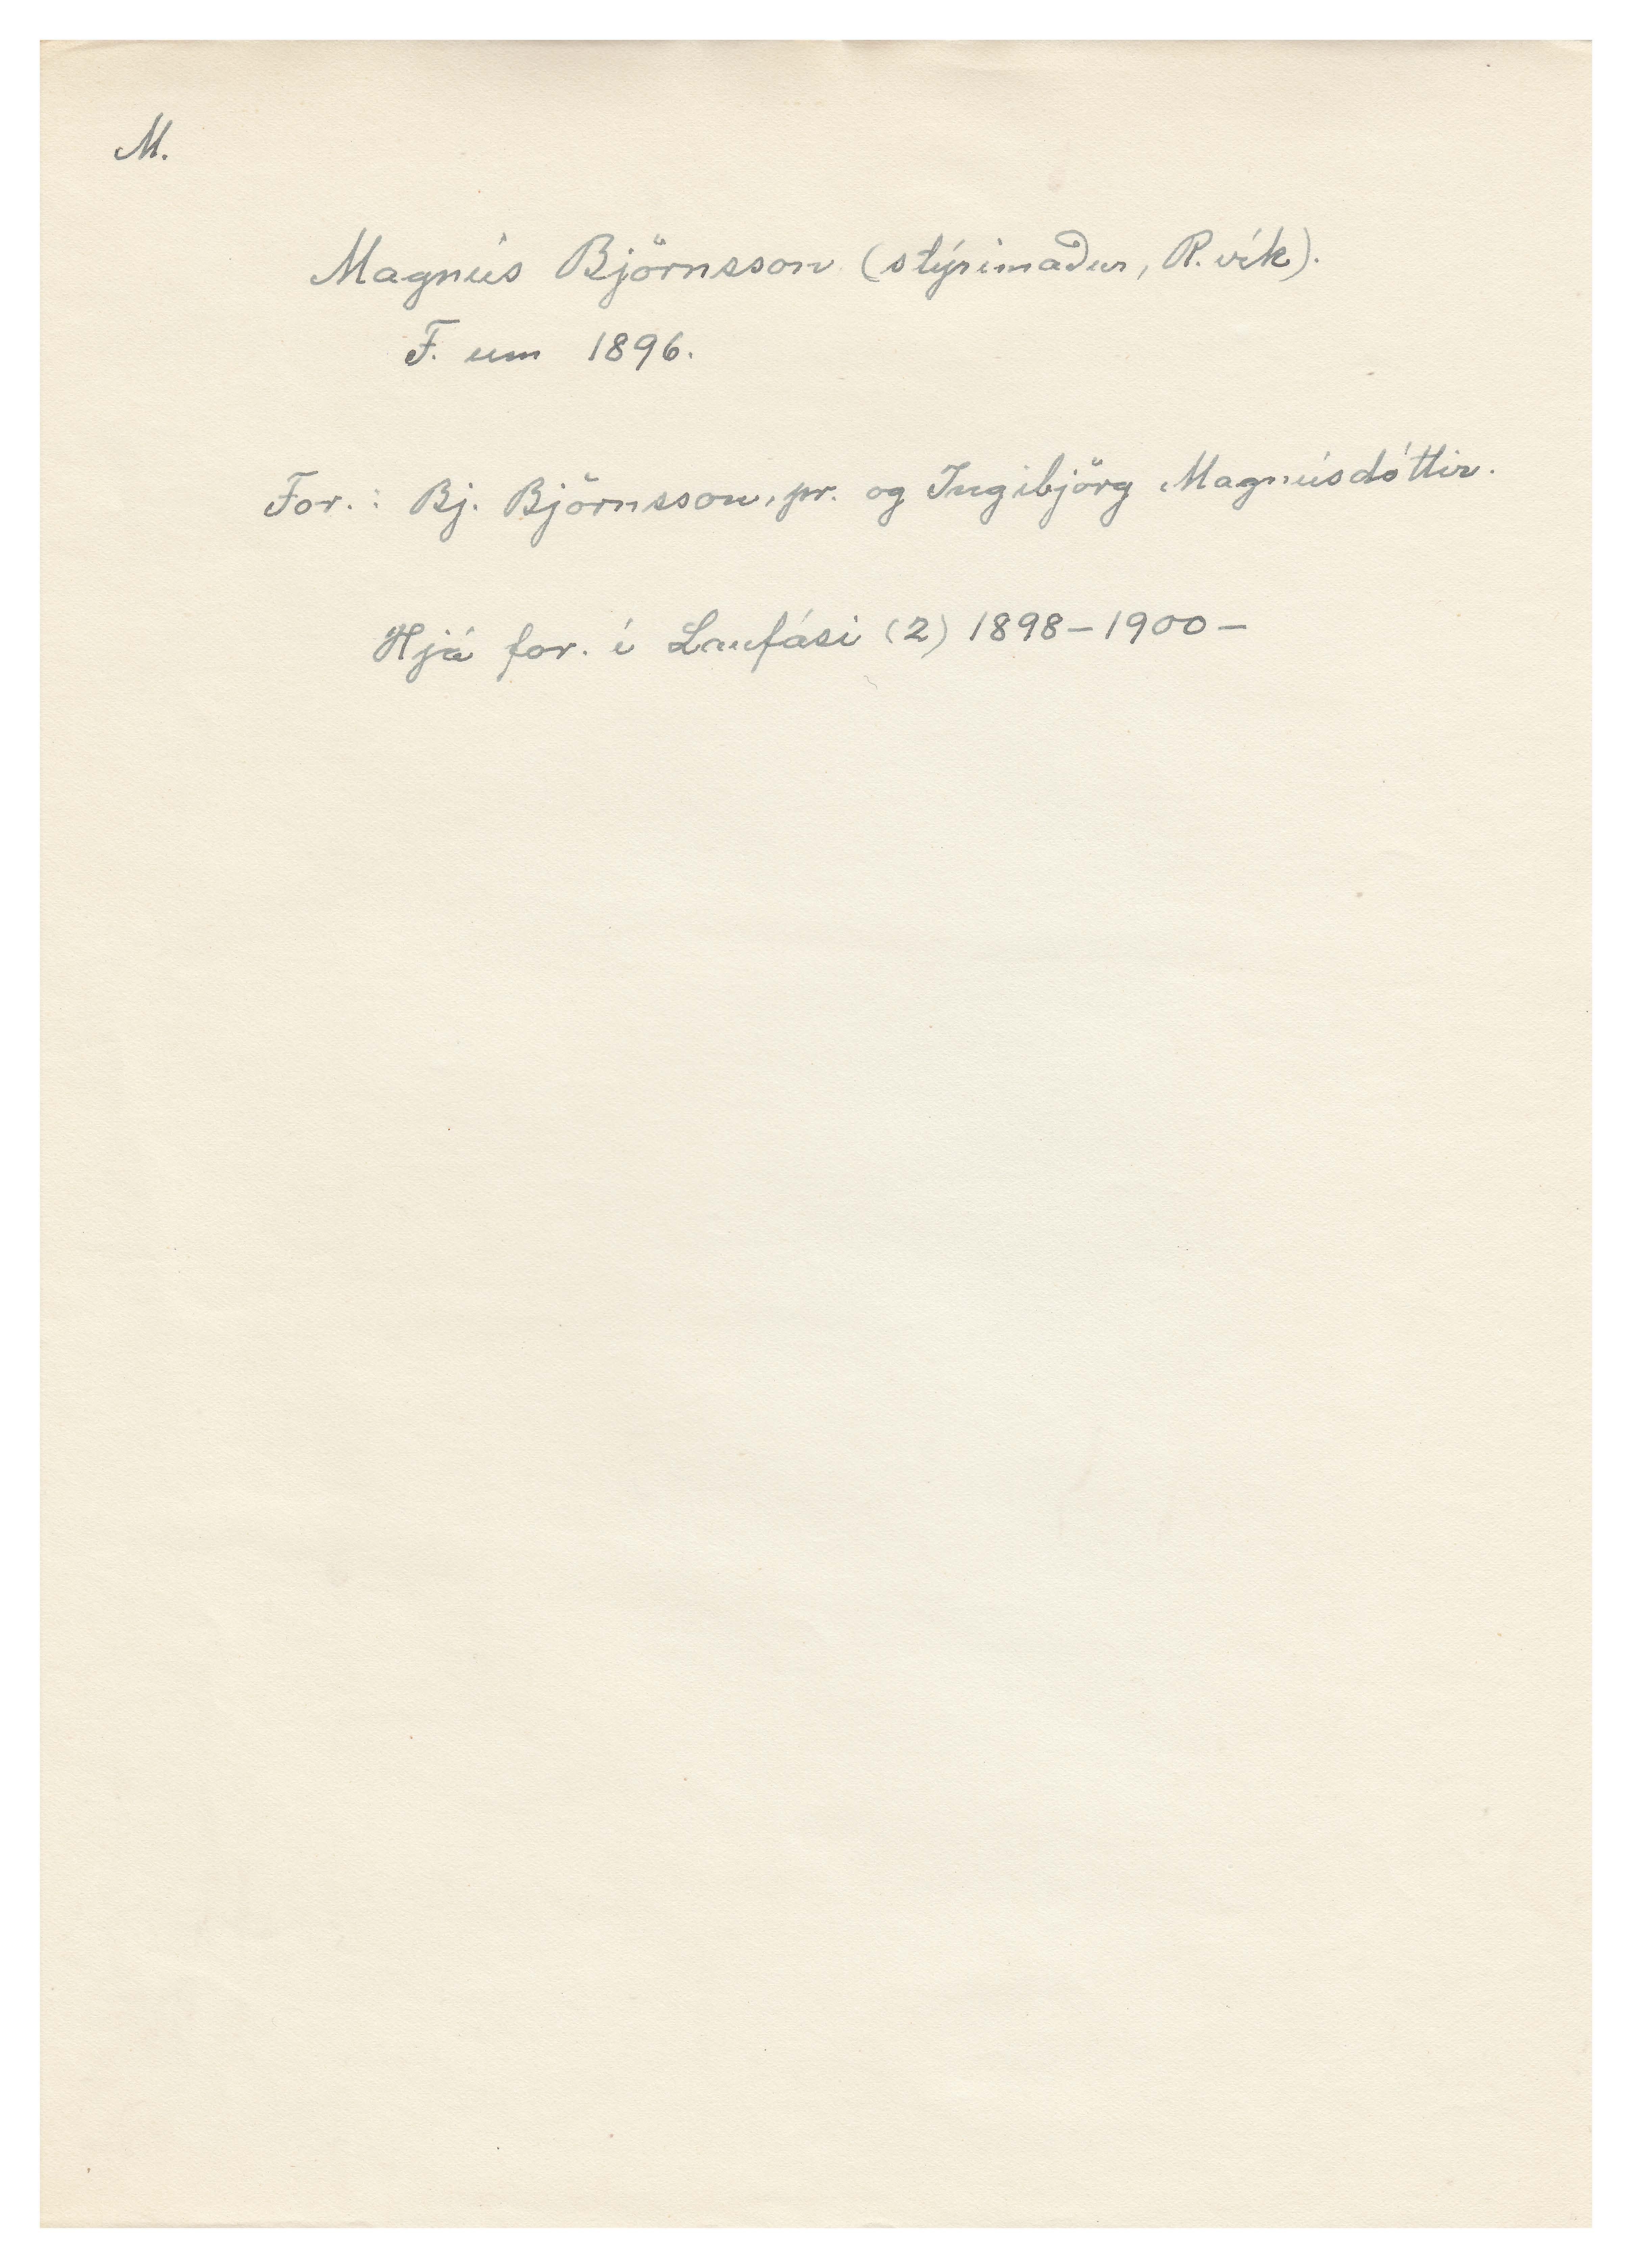 M.
Magnús Björnsson (stýrimaður, R.vík).
F. um 1896.
For.: Bj. Björnsson, pr. og Ingibjörg Magnúsdóttir.
Hjá for. í Laufási (2) 1898-1900-